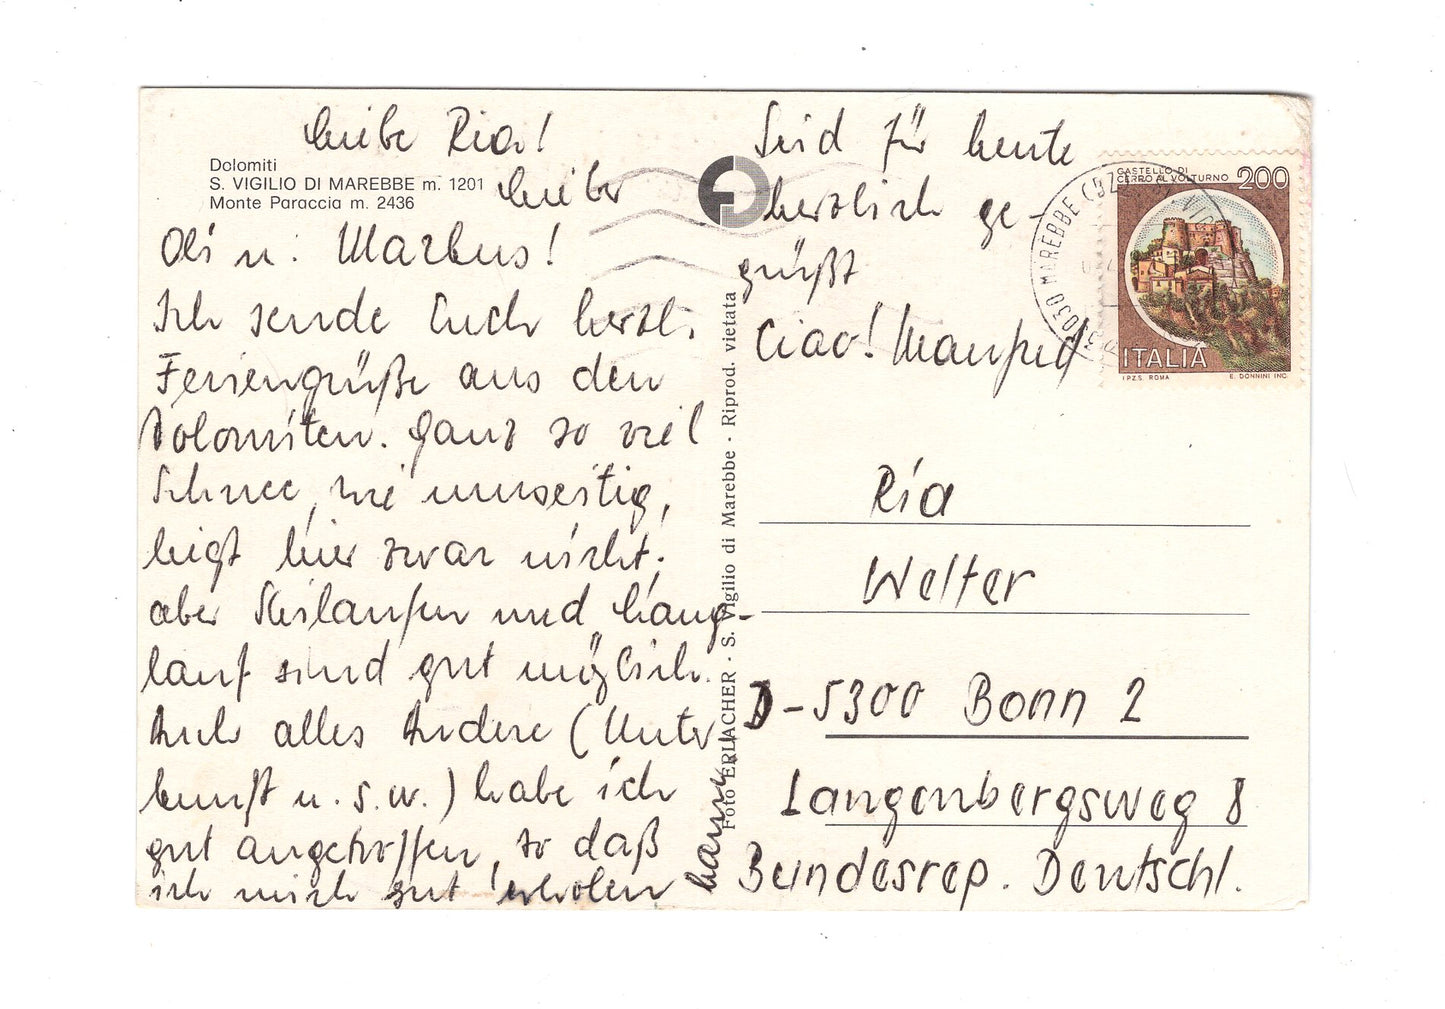 Liebe Ria!
Dolomiti
S. VIGILIO DI MAREBBE m. 1201
Monte Paraccia m. 2436
Lieber
Oli u. Markus!
Ich sende Euch herzl.
Feriengrüße aus den
Dolomiten. Ganz so viel
Schnee, wie
liegt hier zwar nicht;
aber Skilaufen und Lang-
lauf sind gut möglich.
Auch alles Andere (Unter
kunft u.s.w.) habe ich
gut angetroffen, so daß
ich mich gut erholen
kann.
Seid für heute
herzlich ge-
grüßt
Ciao! Manfred
Foto ERLACHER · S. Vigilio di Marebbe · Riprod. vietata
CASTELLO DI
CERRO AL VOLTURNO 200
ITALIA
I.P.Z.S. ROMA E. DONNINI INC.
39030 MAREBBE (BZ)
Ria
Welter
D-5300 Bonn 2
Langenbergsweg 8
Bundesrep. Deutschl.